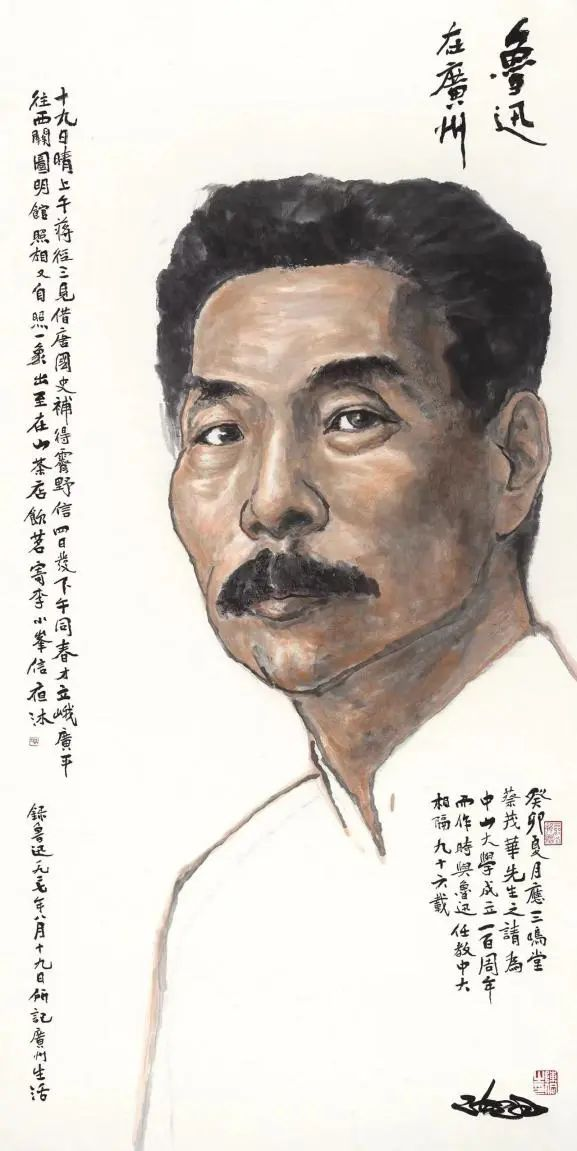 魯迅
在廣州
十九日晴上午蔣徑三見借唐國史補得霽野信四日發下午同春才立峨廣平
往西關圖明館照相又自照一象出至在山茶店飲茗寄李小峯信夜沐
錄魯迅一九二七年八月十九日所記廣州生活
癸卯夏月應三鳴堂
蔡茂華先生之請為
中山大學成立一百周年
而作時與魯迅任教中大
相隔九十六載